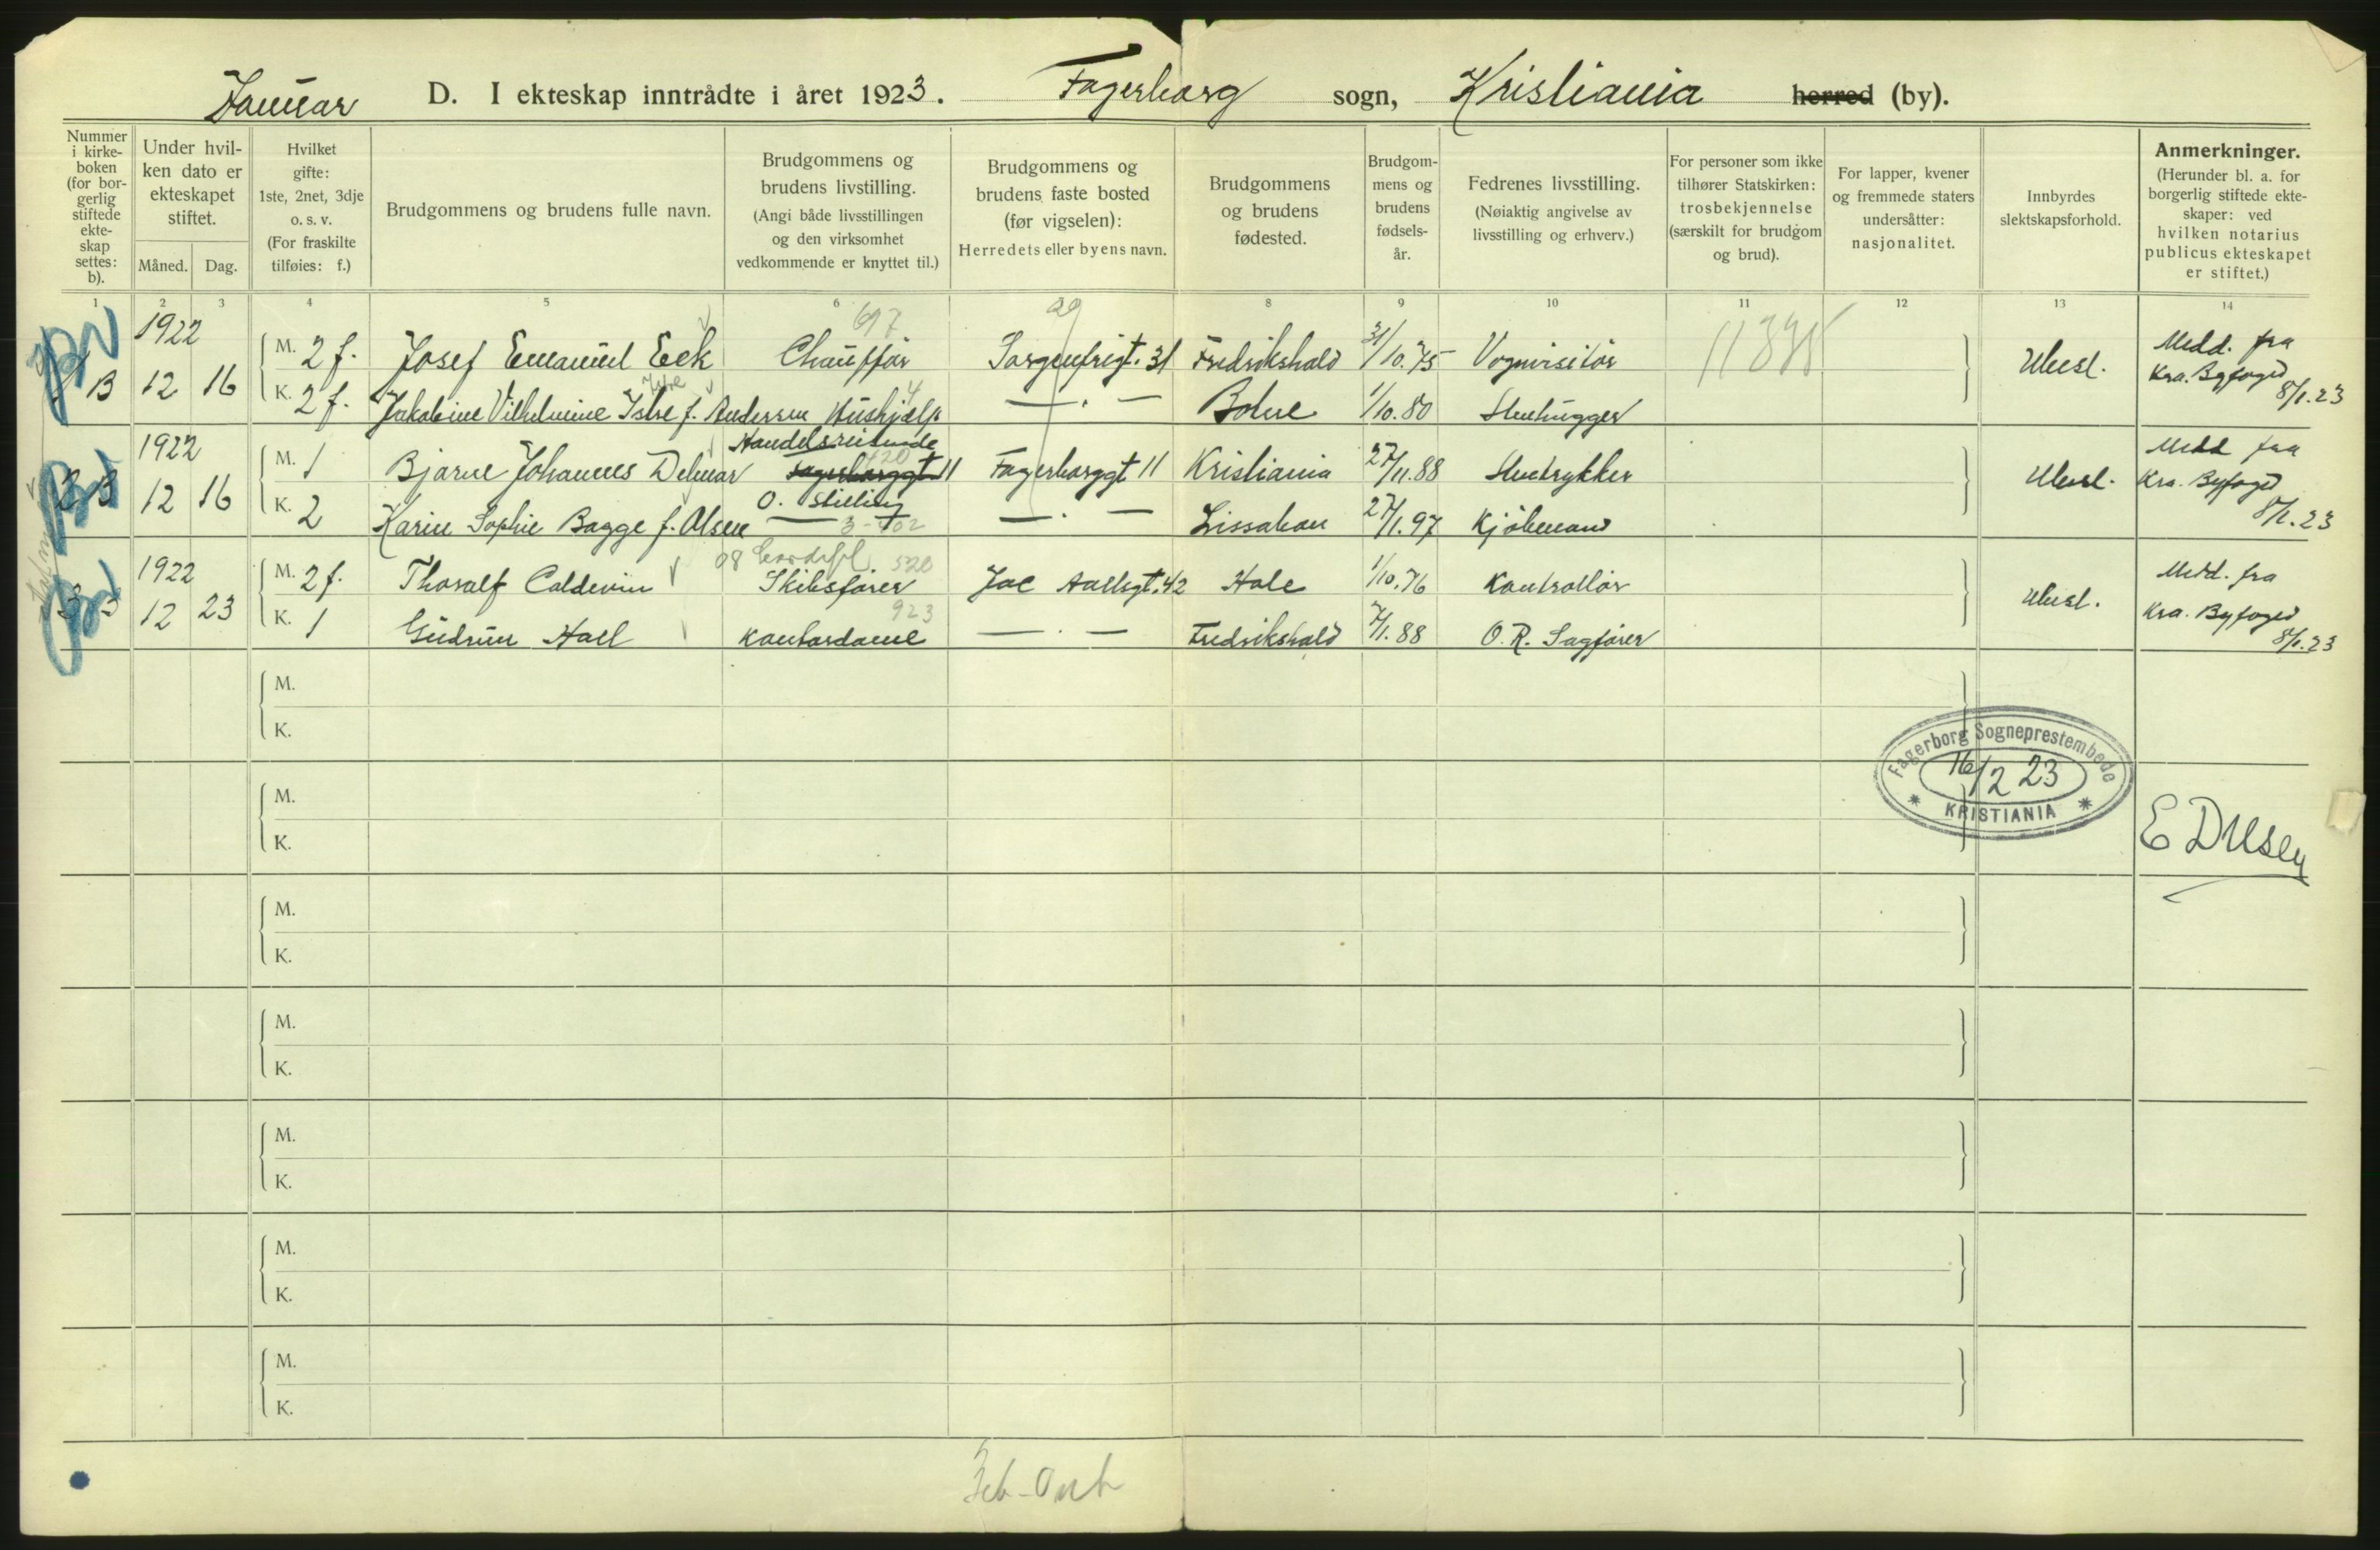 Januar D. I ekteskap inntrådte i året 1923. Fagerborg sogn, Kristiania herred (by).
Nummer i kirke-boken (for bor-gerlig stiftede ekte-skap settes: b).
Under hvil-ken dato er ekteskapet stiftet.
Måned. Dag.
Hvilket gifte: 1ste, 2net, 3dje o. s. v. (For fraskilte tilføies: f.)
Brudgommens og brudens fulle navn.
Brudgommens og brudens livstilling. (Angi både livsstillingen og den virksomhet vedkommende er knyttet til.)
Brudgommens og brudens faste bosted (før vigselen): Herredets eller byens navn.
Brudgommens og brudens fødested.
Brudgom-mens og brudens fødsels-år.
Fedrenes livsstilling. (Nøiaktig angivelse av livsstilling og erhverv.)
For personer som ikke tilhører Statskirken: trosbekjennelse (særskilt for brudgom og brud).
For lapper, kvener og fremmede staters undersåtter: nasjonalitet.
Innbyrdes slektskapsforhold.
Anmerkninger. (Herunder bl. a. for borgerlig stiftede ekte-skaper: ved hvilken notarius publicus ekteskapet er stiftet.)
1 2 3 4 5 6 8 9 10 11 12 13 14
1922 697 29
1 B 12 16 M. 2 f. Josef Emanuel Eek Chauffør Sorgenfrigt. 31 Fredrikshald 31/10.75 Vognvisitør Ubesl. Medd. fra Kra. Byfoged 8/1.23
K. 2 f. Jakobine Vilhelmine Istre f. Andersen Hushjælp — . — Bohus 1/10.80 Stenhugger
1922 Handelsreisende
2 B 12 16 M. 1 Bjarne Johannes Delmar Fagerborggt 11 Fagerborggt 11 Kristiania 27/11.88 Stentrykker Ubesl. Medd fra Kra. Byfoged 8/1.23
O. Stilling
K. 2 Karin Sophie Bagge f. Olsen — 3-402 — . — Lissabon 27/1.97 Kjøbmand
1922 520
3 B 12 23 M. 2 f. Thoralf Coldevin Skibsfører Jac Aallsgt. 42 Hole 1/10.76 Kontrollør Ubesl. Medd. fra Kra. Byfoged 8/1.23
923
K. 1 Gudrun Hall Kontordame — . — Fredrikshald 7/1.88 O. R. Sagfører
M.
K.
Fagerborg Sogneprestembede
16/2 23
KRISTIANIA
M.
K.
M.
K.
M.
K.
M.
K.
M.
K.
M.
K.